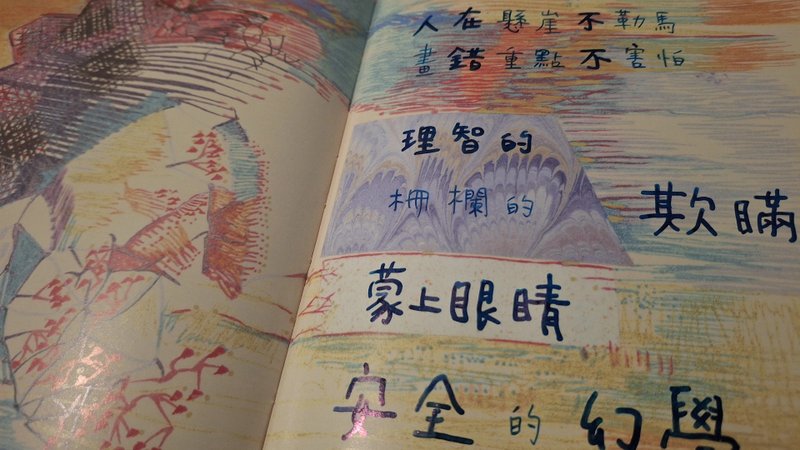 人在懸崖不勒馬
畫錯重點不害怕
理智的
柵欄的
欺瞞
蒙上眼睛
安全的幻覺